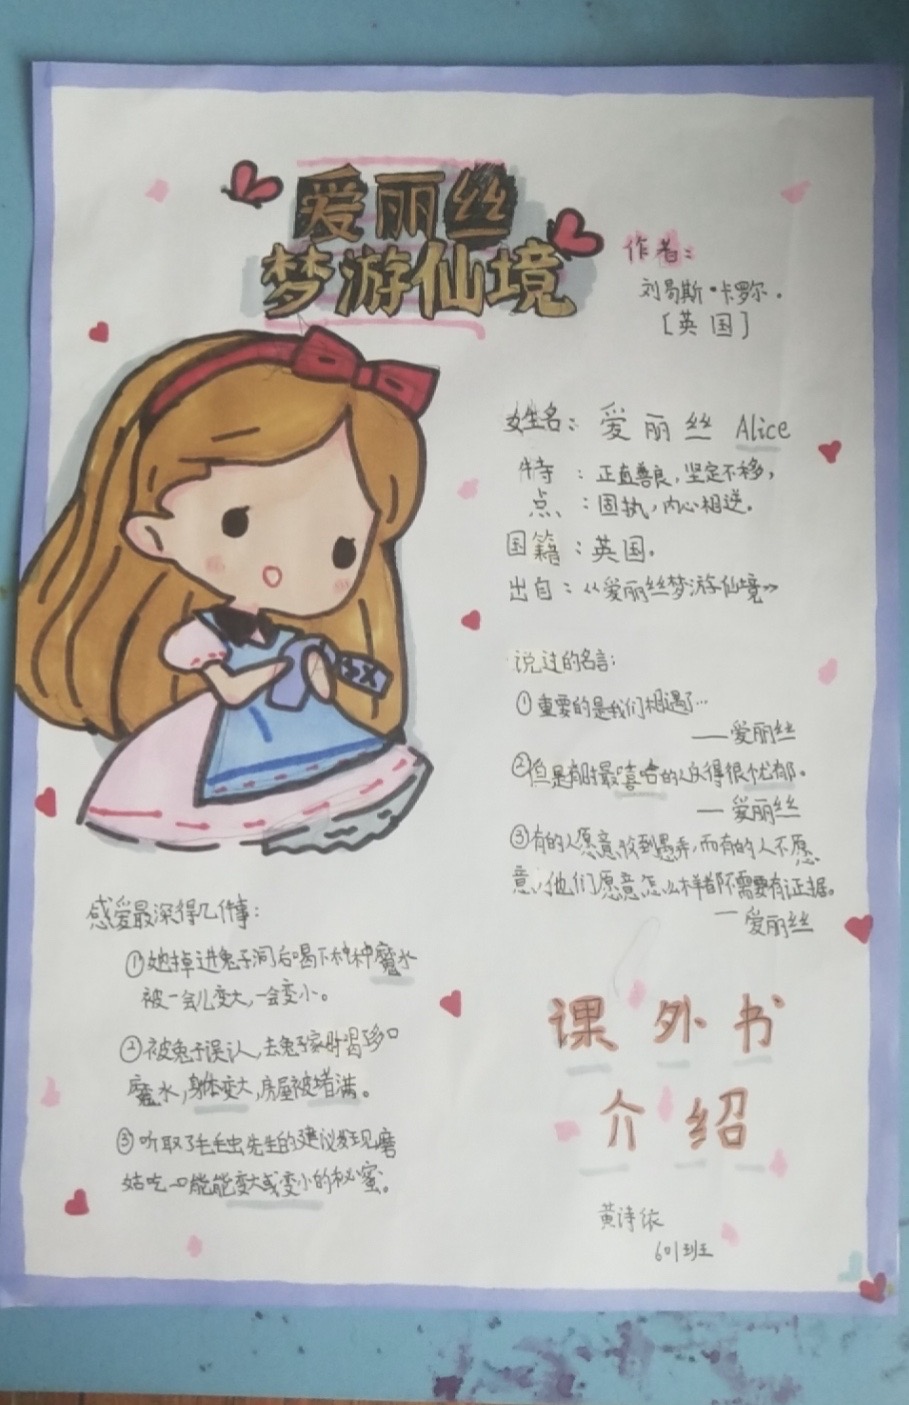 爱丽丝
梦游仙境
作者：
刘易斯·卡罗尔.
[英国]
姓名：爱丽丝 Alice
特点：正直善良，坚定不移，
：固执，内心相送.
国籍：英国.
出自：《爱丽丝梦游仙境》
说过的名言：
①重要的是我们相遇了…
——爱丽丝
②但是有时最嘻哈的人众得很忧郁。
—爱丽丝
③有的人愿意收到愚弄，而有的人不愿
意，他们愿意怎么样都不需要有证据。
—爱丽丝
感爱最深得几件事：
①她掉进兔子洞后喝下种种魔水
被一会儿变大，一会变小。
②被兔子误认，去兔子家时喝多口
魔水，身体变大，房屋被堵满。
③听取了毛毛虫先生的建议发现磨
姑吃一口能能变大或变小的秘蜜。
课外书
介绍
黄诗依
601班